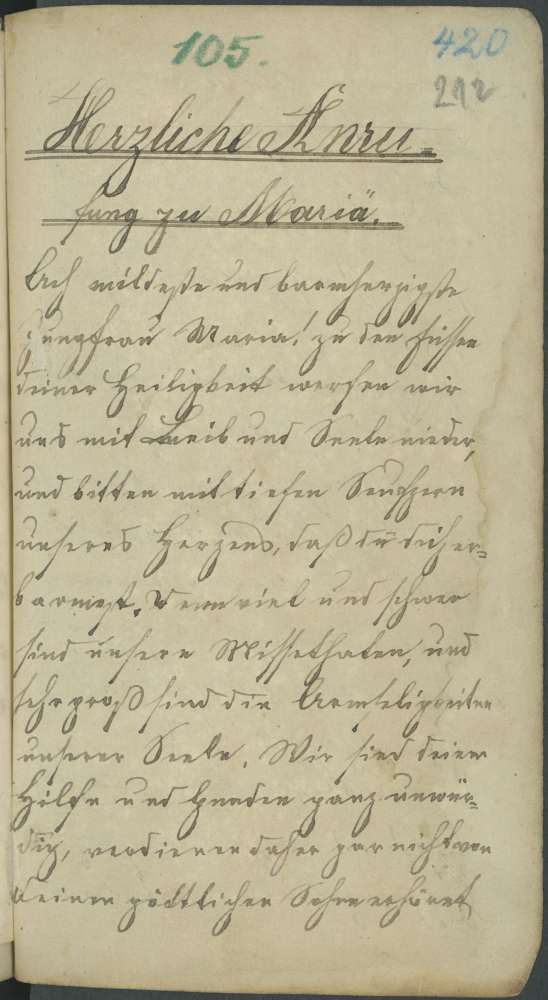 105.
420
212
Herzliche Anru-
fung zu Mariä.
Ach mildeste und barmherzigste
Jungfrau Maria! zu den Füssen
deiner Heiligkeit werfen wir
uns mit Leib und Seele nieder,
und bitten mit tiefen Seufzern
unseres Herzens, daß du dich er-
barmest. Denn viel und schwer
sind unsere Missethaten, und
sehr groß sind die Armseligkeiten
unserer Seele. Wir sind deiner
Hilfe und Gnaden ganz unwür-
dig, verdienen daher gar nicht von
deinem göttlichen Sohn erhöret